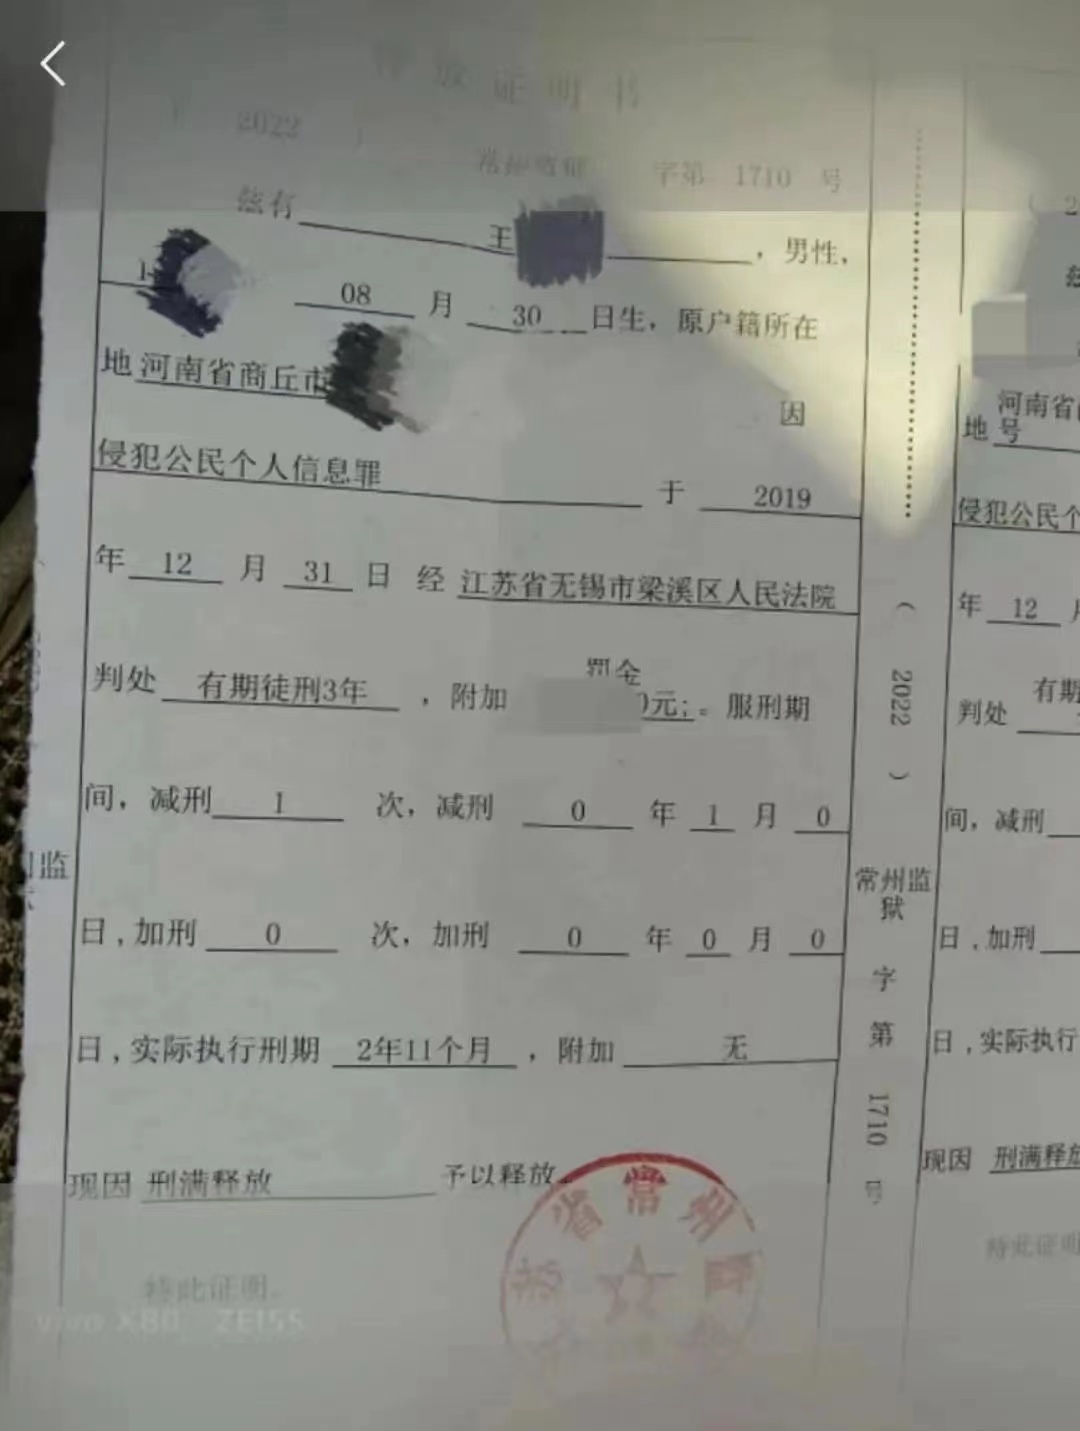 释放证明书
2022
常州监狱 字第 1710 号
兹有 王 ，男性，
1 08 月 30 日生，原户籍所在
地 河南省商丘市 因
侵犯公民个人信息罪 于 2019
年 12 月 31 日 经 江苏省无锡市梁溪区人民法院
判处 有期徒刑3年 ，附加 罚金 0元；。服刑期
间，减刑 1 次，减刑 0 年 1 月 0
日，加刑 0 次，加刑 0 年 0 月 0
日，实际执行刑期 2年11个月 ，附加 无
现因 刑满释放 予以释放。
特此证明。
江苏省常州监狱
vivo X80 ZEISS
监
（ 2022 ）
常州监狱
字
第
1710
号
2
河南省
地 号
侵犯公民个
年 12 月
有期
判处
间，减刑
日，加刑
日，实际执行
现因 刑满释放
特此证明